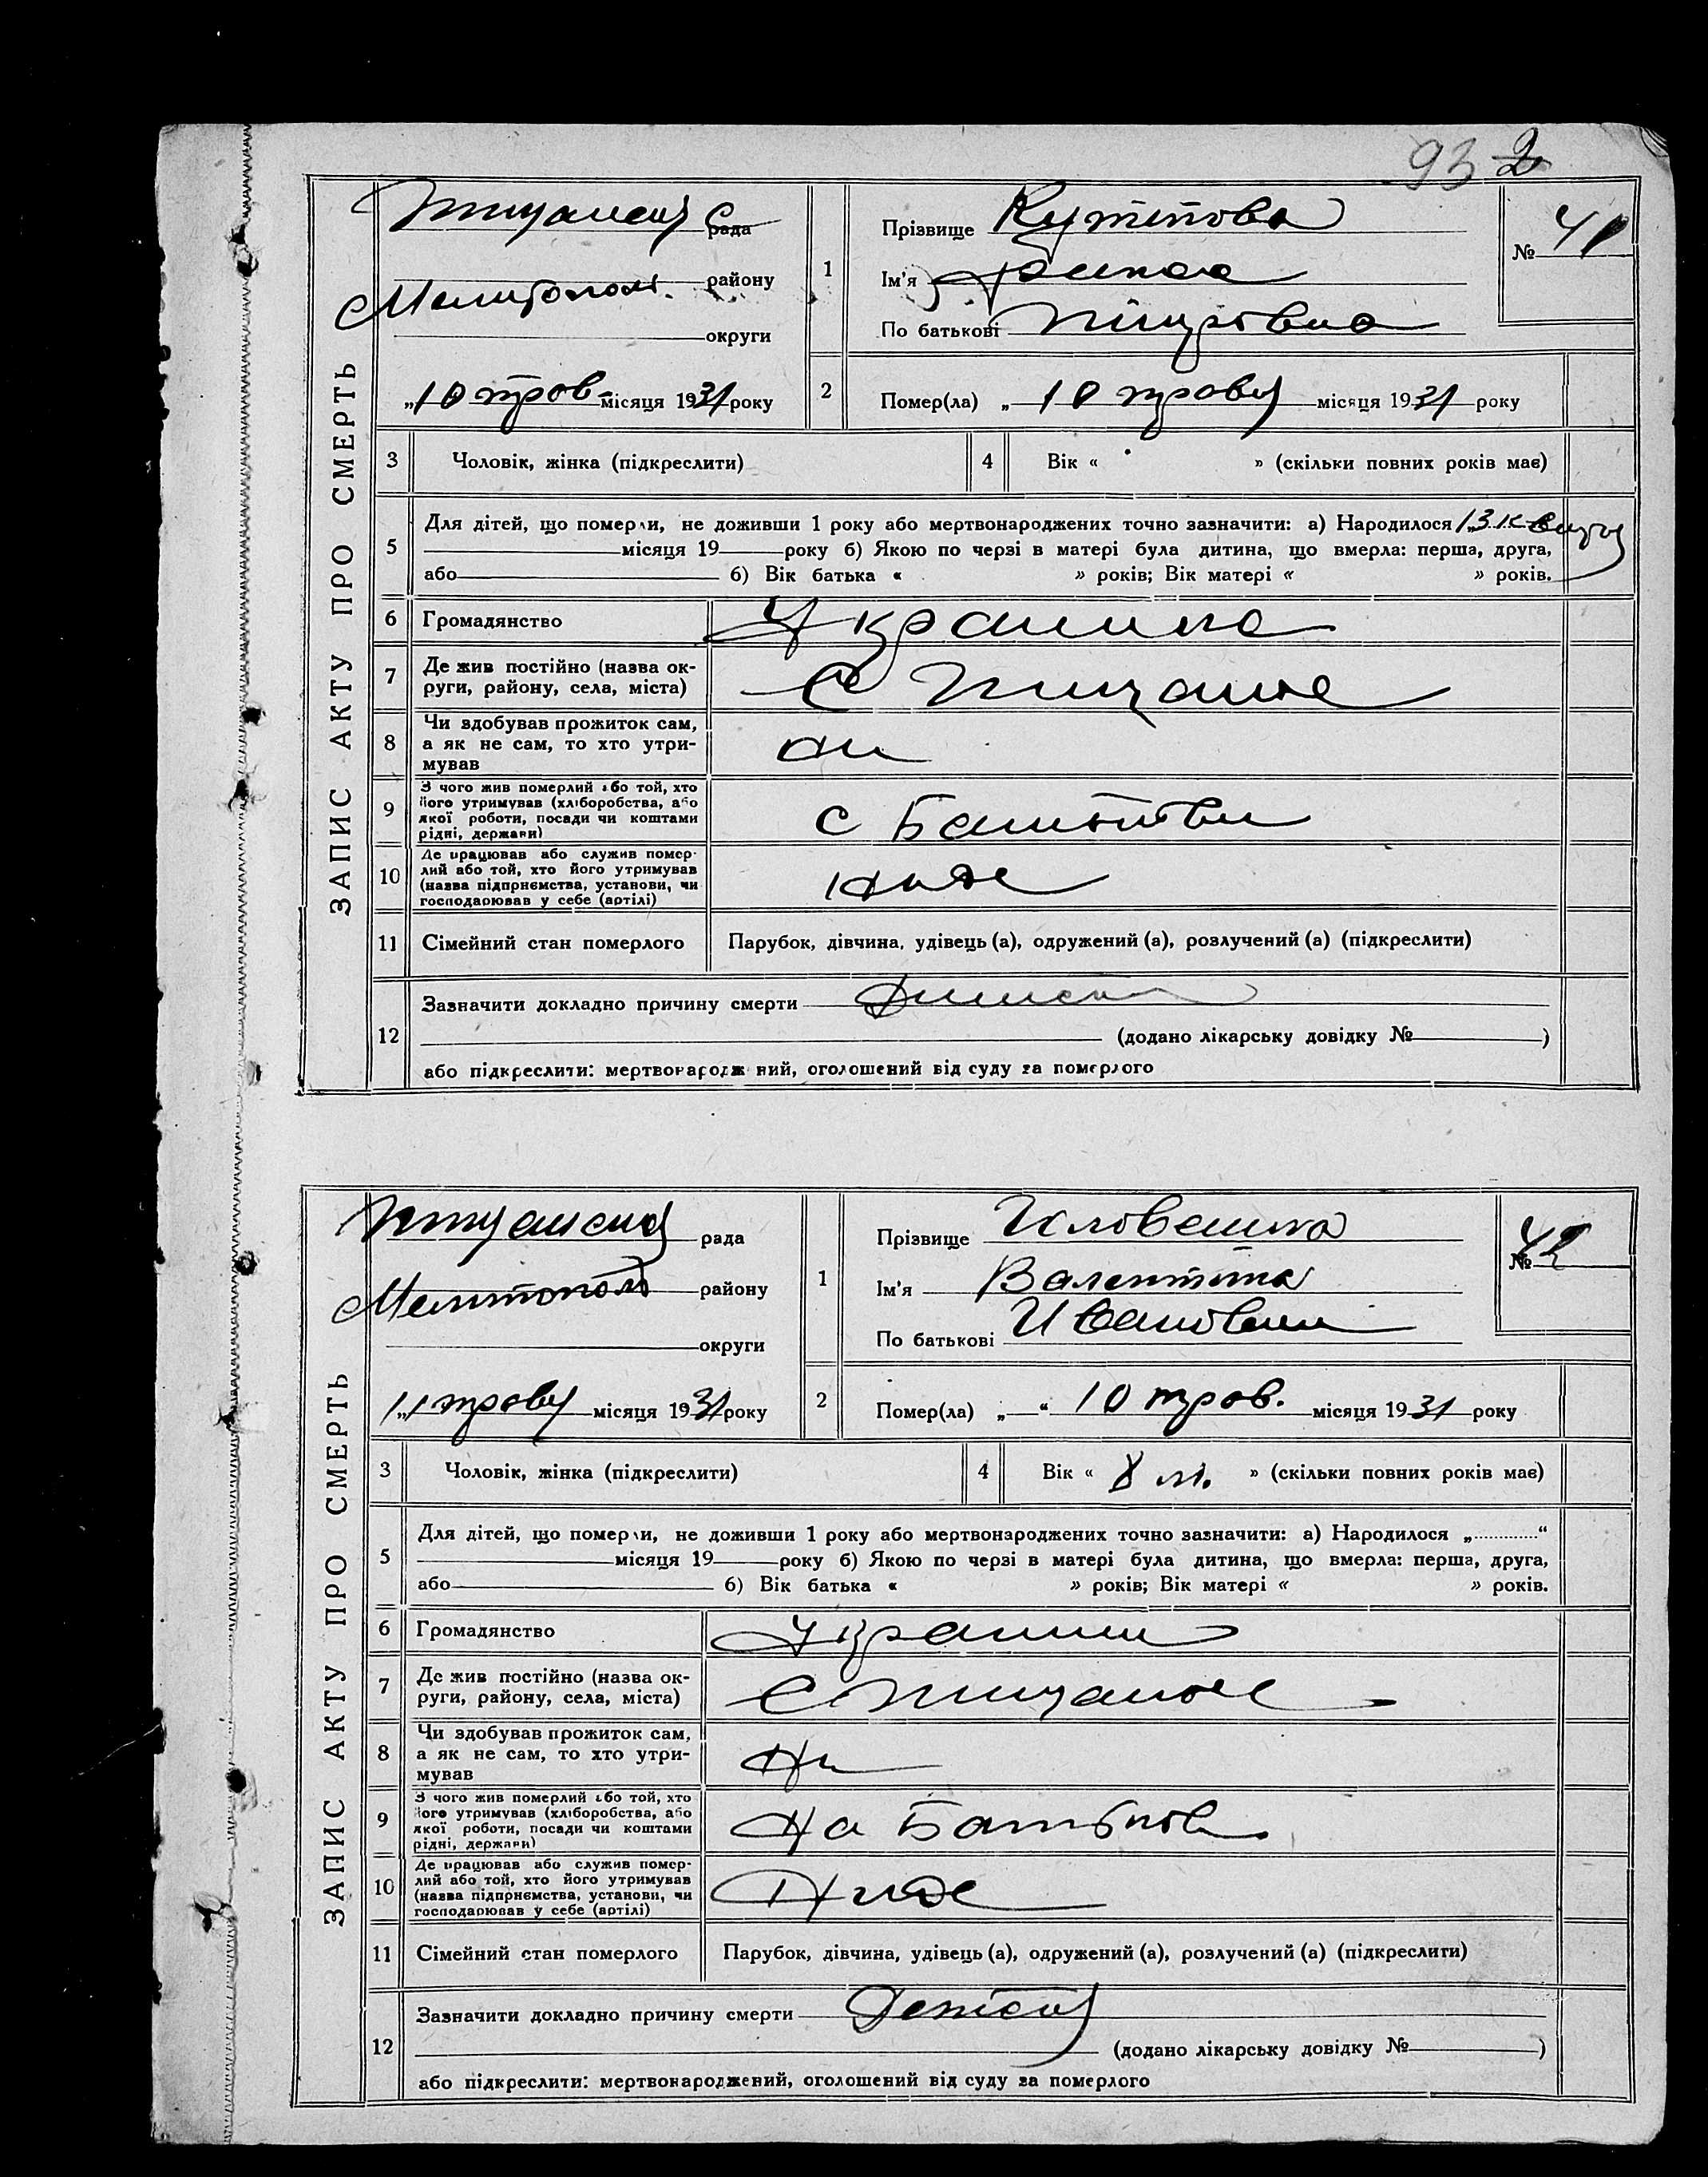 93 2
ЗАПИС АКТУ ПРО СМЕРТЬ
рада
Мелитопол. району
округи
„10 трав. місяця 1931 року
1
Прізвище Кутепова
Ім'я
По батькові
№ 41
2
Помер(ла) „ 10 траву місяця 1931 року
3 Чоловік, жінка (підкреслити)
4 Вік « » (скільки повних років має)
5 Для дітей, що померли, не доживши 1 року або мертвонароджених точно зазначити: а) Народилося 13 квитня
місяця 19 року б) Якою по черзі в матері була дитина, що вмерла: перша, друга,
або б) Вік батька « » років; Вік матері « » років.
6 Громадянство Украинка
7 Де жив постійно (назва ок-
руги, району, села, міста)
8 Чи здобував прожиток сам,
а як не сам, то хто утри-
мував
Ни
9 З чого жив померлий або той, хто
його утримував (хліборобства, або
якої роботи, посади чи коштами
рідні, держави)
10 Де працював або служив помер-
лий або той, хто його утримував
(назва підприємства, установи, чи
господарював у себе (артілі)
Ниде
11 Сімейний стан померлого Парубок, дівчина, удівець (а), одружений (а), розлучений (а) (підкреслити)
12 Зазначити докладно причину смерти
(додано лікарську довідку № )
або підкреслити: мертвонароджений, оголошений від суду за померлого
ЗАПИС АКТУ ПРО СМЕРТЬ
рада
Мелитопол району
округи
„11 траву місяця 1931 року
1
Прізвище Иловашка
Ім'я Валентина
По батькові Ивановна
№ 42
2
Помер(ла) „ “ 10 трав. місяця 1931 року
3 Чоловік, жінка (підкреслити)
4 Вік « 8 м. » (скільки повних років має)
5 Для дітей, що померли, не доживши 1 року або мертвонароджених точно зазначити: а) Народилося „ “
місяця 19 року б) Якою по черзі в матері була дитина, що вмерла: перша, друга,
або б) Вік батька « » років; Вік матері « » років.
6 Громадянство
7 Де жив постійно (назва ок-
руги, району, села, міста)
8 Чи здобував прожиток сам,
а як не сам, то хто утри-
мував
Ни
9 З чого жив померлий або той, хто
його утримував (хліборобства, або
якої роботи, посади чи коштами
рідні, держави)
На Батьков
10 Де працював або служив помер-
лий або той, хто його утримував
(назва підприємства, установи, чи
господарював у себе (артілі)
Ниде
11 Сімейний стан померлого Парубок, дівчина, удівець (а), одружений (а), розлучений (а) (підкреслити)
12 Зазначити докладно причину смерти
(додано лікарську довідку № )
або підкреслити: мертвонароджений, оголошений від суду за померлого